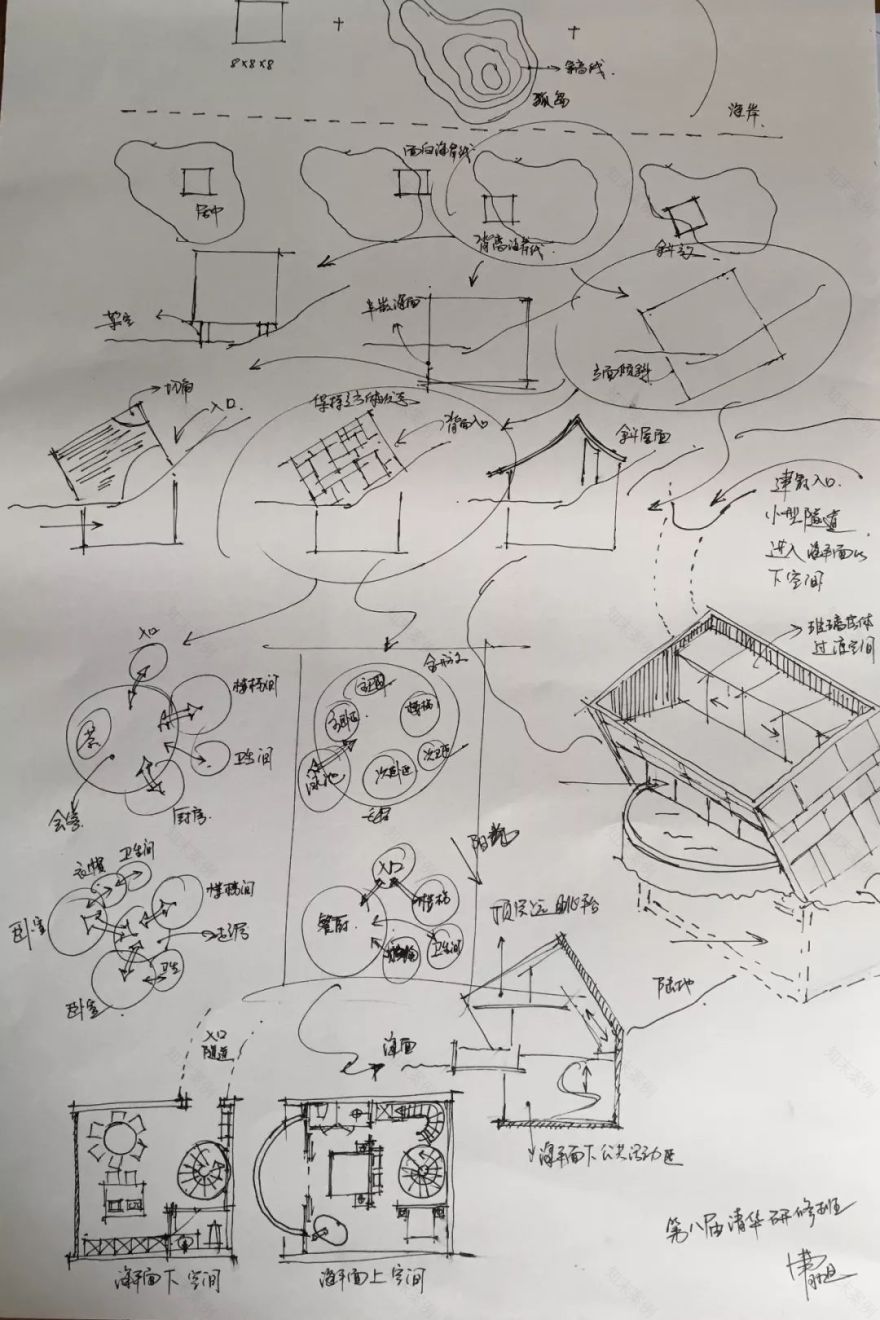 8×8×8
等高线
孤岛
海岸
居中
面向海岸线
背离海岸线
斜交
架空
半嵌海面
立面倾斜
切角
入口
保持立方体形态
背面入口
斜屋面
建筑入口
小型隧道
进入海平面以
下空间
玻璃盒体
过渡空间
入口
楼梯间
茶
卫生间
会客
厨房
主卫
主卧区
楼梯
次卫
次卧区
泳池
衣帽
卫生间
楼梯间
卧室
走廊
卫生
卧室
入口
餐厨
楼梯
卫生间
顶层远眺平台
陆地
入口
隧道
海面
海平面下公共活动区
海平面下空间
海平面上空间
第八届清华研修班
知末案例